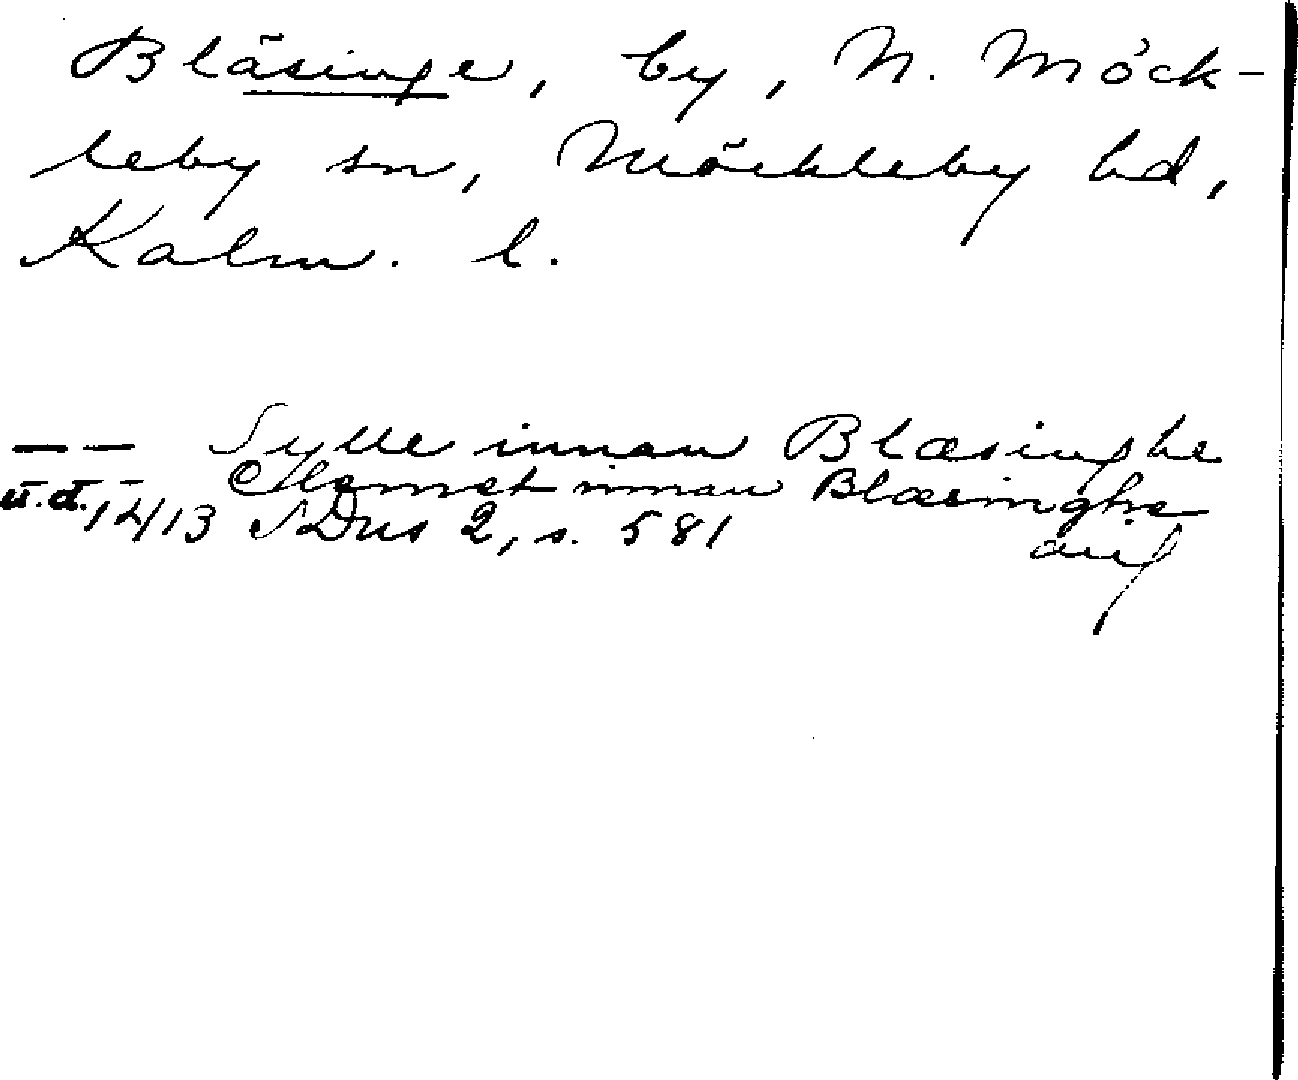 Bläsinge, by, N. Möck-
leby sn, Möckleby hd,
Kalm. l.
— — Sylle innan Blæsinghe
— — Clemet innan Blæsinghe
u.d. 1413 SDns 2, s. 581 avs